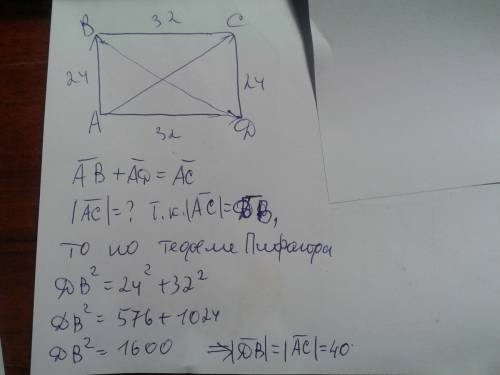 В 32 С
24 24
А 32 Д
A̅B̅ + A̅Д̅ = A̅C̅
|A̅C̅| = ? Т.к. |A̅C̅| = Д̅В̅,
то по теореме Пифагора
ДВ² = 24² + 32²
ДВ² = 576 + 1024
ДВ² = 1600 ⇒ |Д̅В̅| = |A̅C̅| = 40.